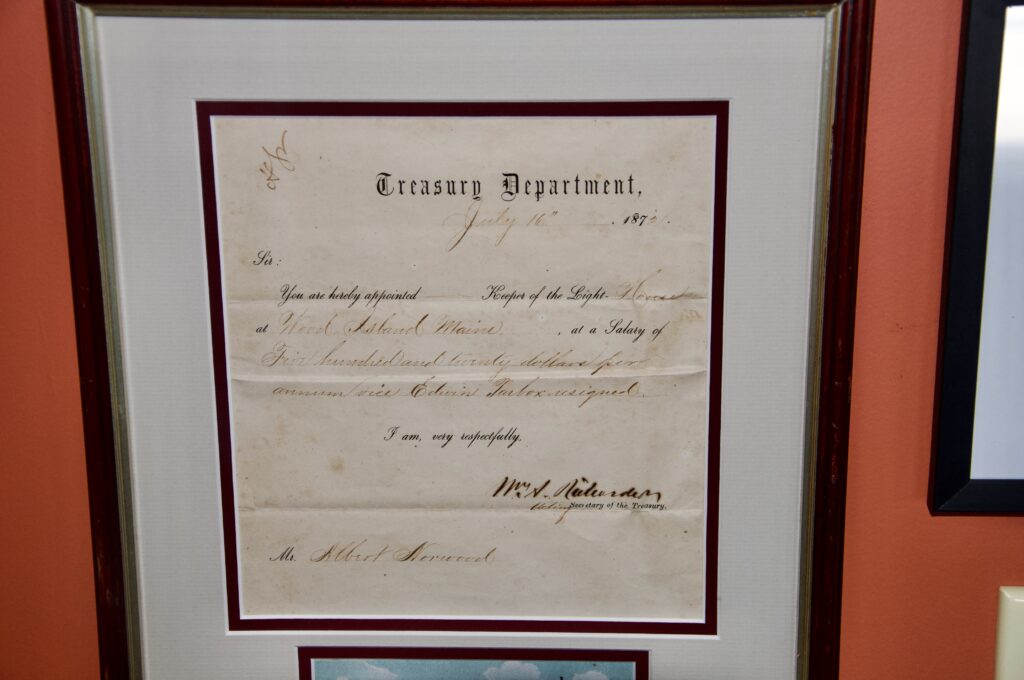 Treasury Department,
July 16" . 1872.
Sir:
You are hereby appointed Keeper of the Light-House
at Wood Island Maine , at a Salary of
Five hundred and twenty dollars per
annum vice Edwin Tarbox resigned.
I am, very respectfully,
Wm. A. Richardson
Acting Secretary of the Treasury.
Mr. Albert Norwood